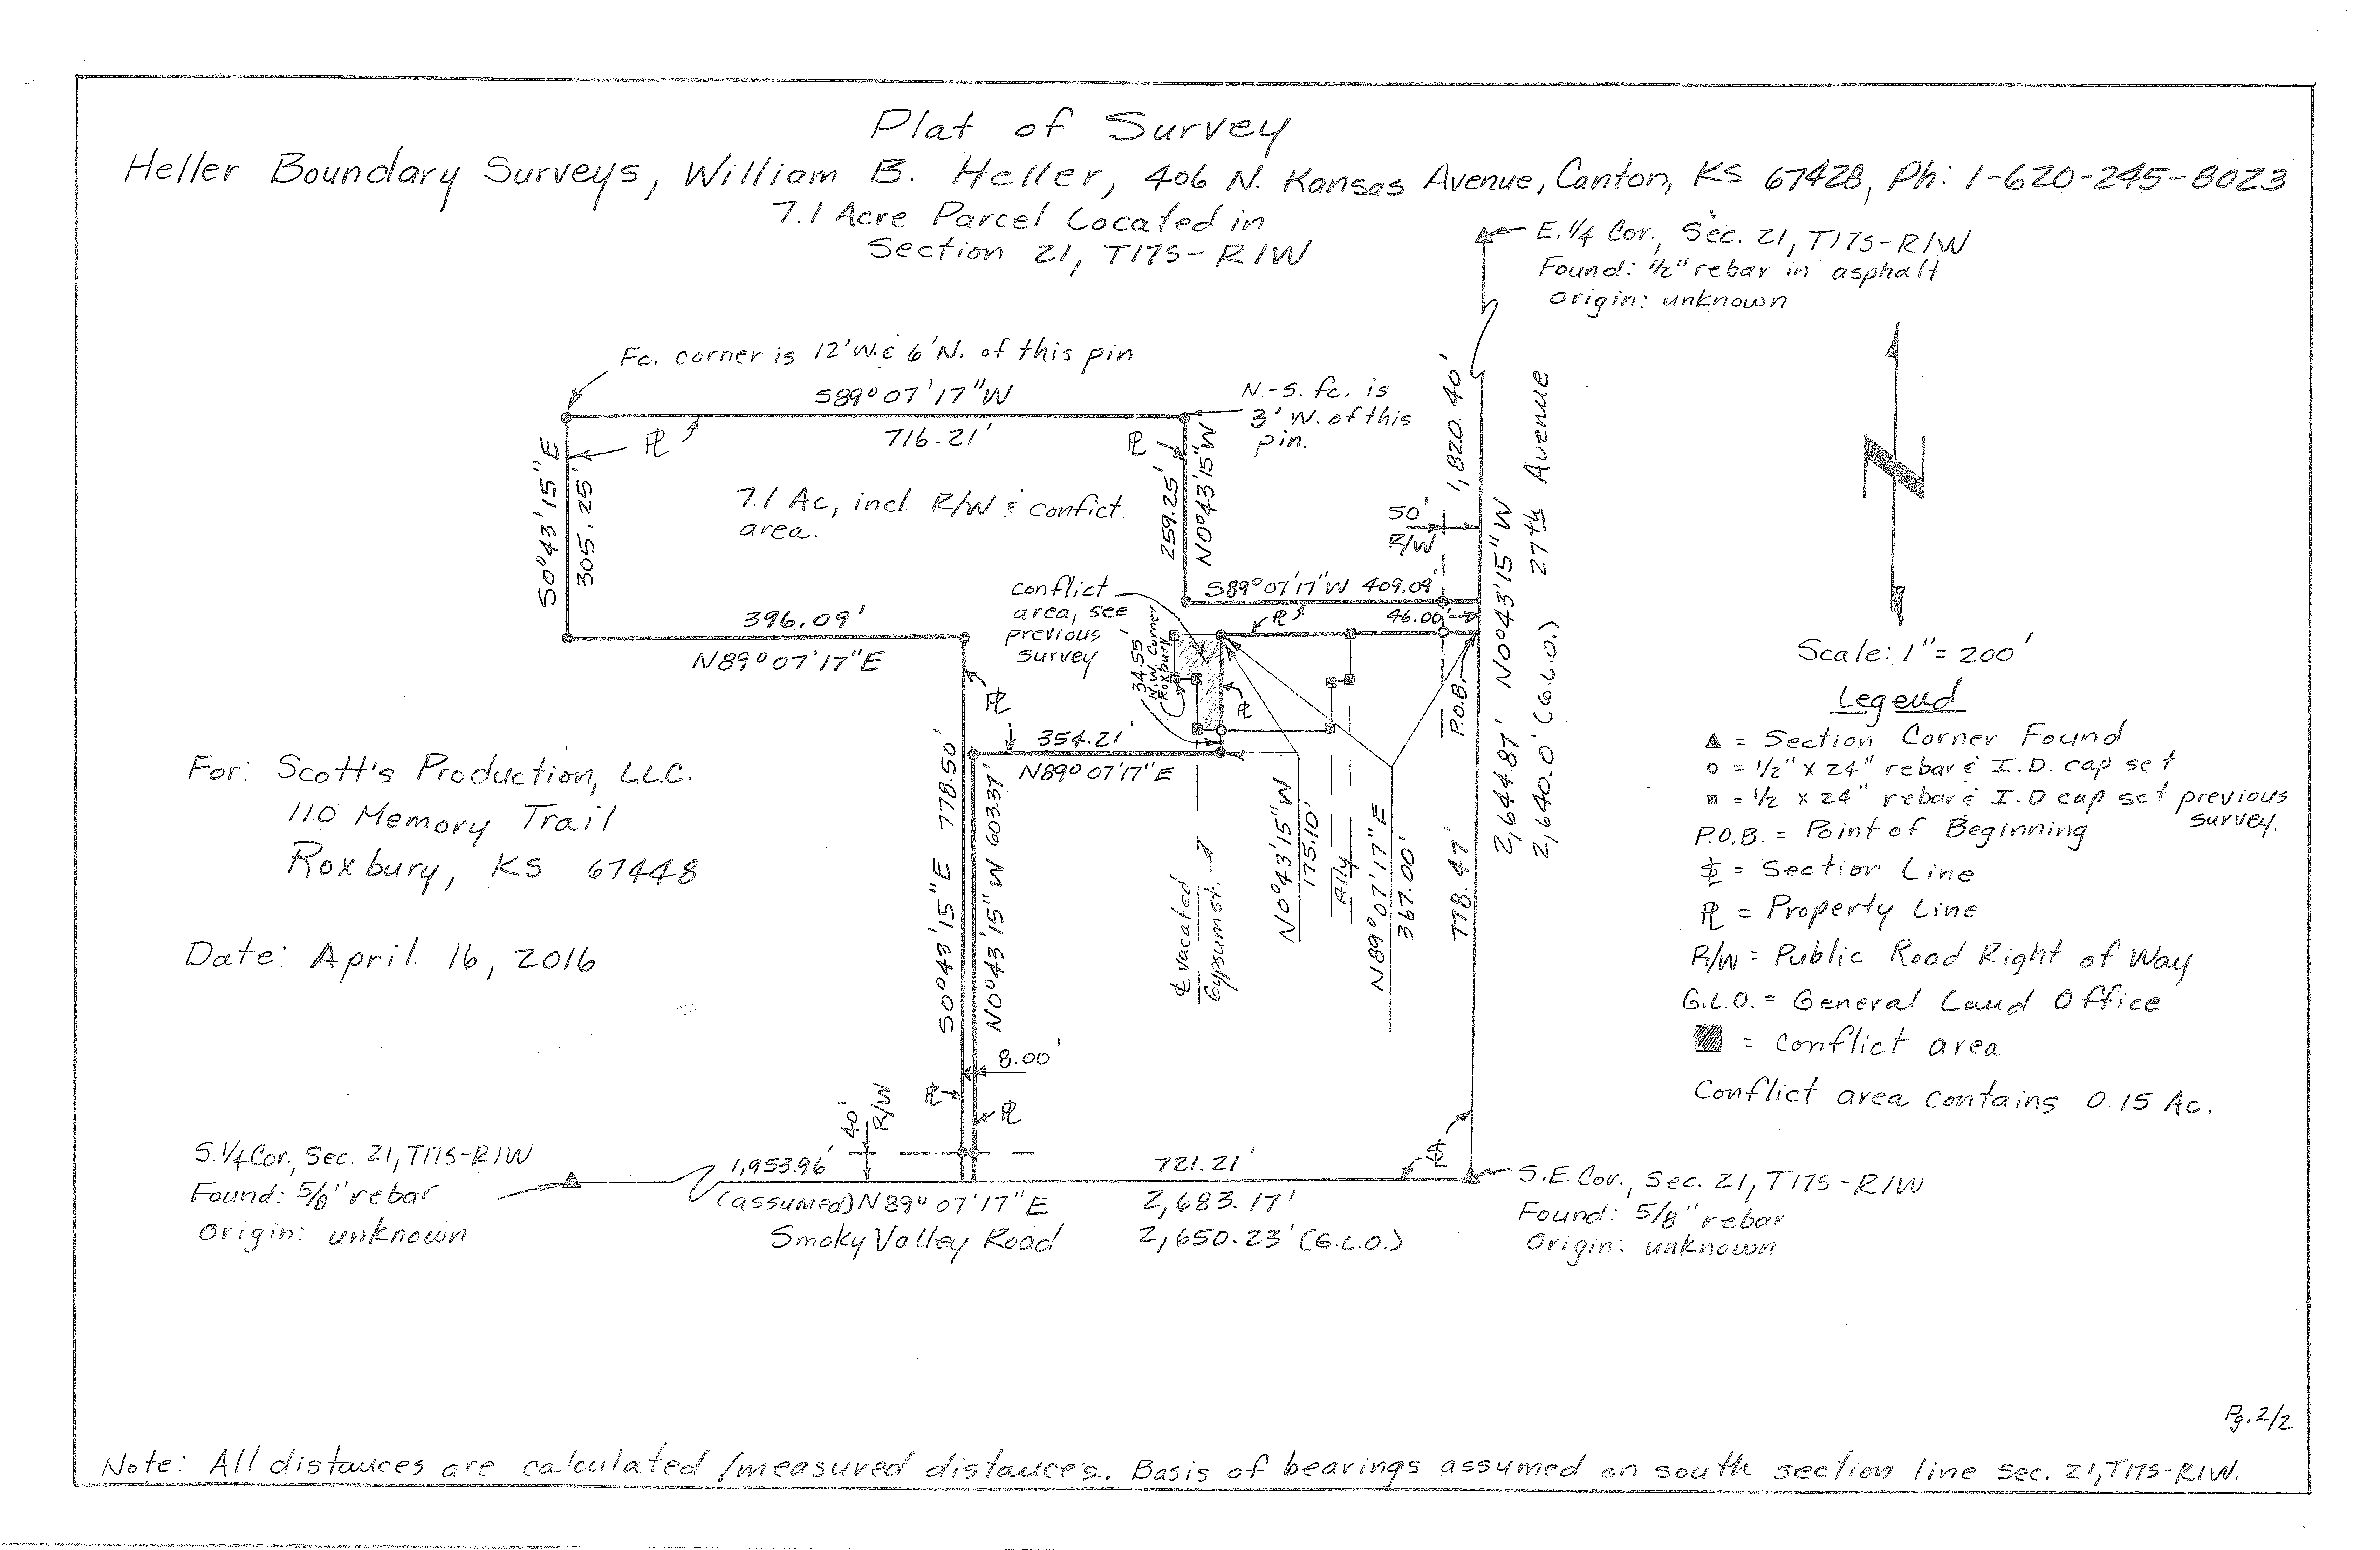 Plat of Survey
Heller Boundary Surveys, William B. Heller, 406 N. Kansas Avenue, Canton, KS 67428, Ph: 1-620-245-8023
7.1 Acre Parcel Located in
Section 21, T17S-R1W
E.1/4 Cor., Sec. 21, T17S-R1W
Found: 1/2" rebar in asphalt
Origin: unknown
Fc. corner is 12'W. & 6'N. of this pin
S89°07'17"W
716.21'
N.-S. fc. is
3' W. of this
pin.
S0°43'15"E
305.25'
PL
PL
259.25'
N0°43'15"W
7.1 Ac, incl. R/W & confict
area.
1,820.40'
50'
R/W
27th Avenue
2,644.87' N0°43'15"W
2,640.0' (G.L.O.)
S89°07'17"W 409.09'
46.00'
PL
conflict
area, see
previous
survey
34.55'
N.W. Corner
Roxbury
396.09'
N89°07'17"E
PL
PL
P.O.B.
354.21'
N89°07'17"E
Scale: 1" = 200'
Legend
▲ = Section Corner Found
o = 1/2" x 24" rebar & I.D. cap set
■ = 1/2 x 24" rebar & I.D cap set previous
survey.
P.O.B. = Point of Beginning
SL = Section Line
PL = Property Line
R/W = Public Road Right of Way
G.L.O. = General Land Office
= conflict area
Conflict area contains 0.15 Ac.
For: Scott's Production, LLC.
110 Memory Trail
Roxbury, KS 67448
Date: April 16, 2016
S0°43'15"E 778.50'
N0°43'15"W 603.37'
℄ vacated
Gypsum st.
N0°43'15"W
175.10'
Ally
N89°07'17"E
367.00'
778.47'
8.00'
PL
PL
40'
R/W
S.1/4 Cor., Sec. 21, T17S-R1W
Found: 5/8" rebar
Origin: unknown
1,953.96'
(assumed) N89°07'17"E
Smoky Valley Road
721.21'
2,683.17'
2,650.23' (G.L.O.)
SL
S.E. Cor., Sec. 21, T17S-R1W
Found: 5/8" rebar
Origin: unknown
Pg. 2/2
Note: All distances are calculated/measured distances. Basis of bearings assumed on south section line Sec. 21, T17S-R1W.